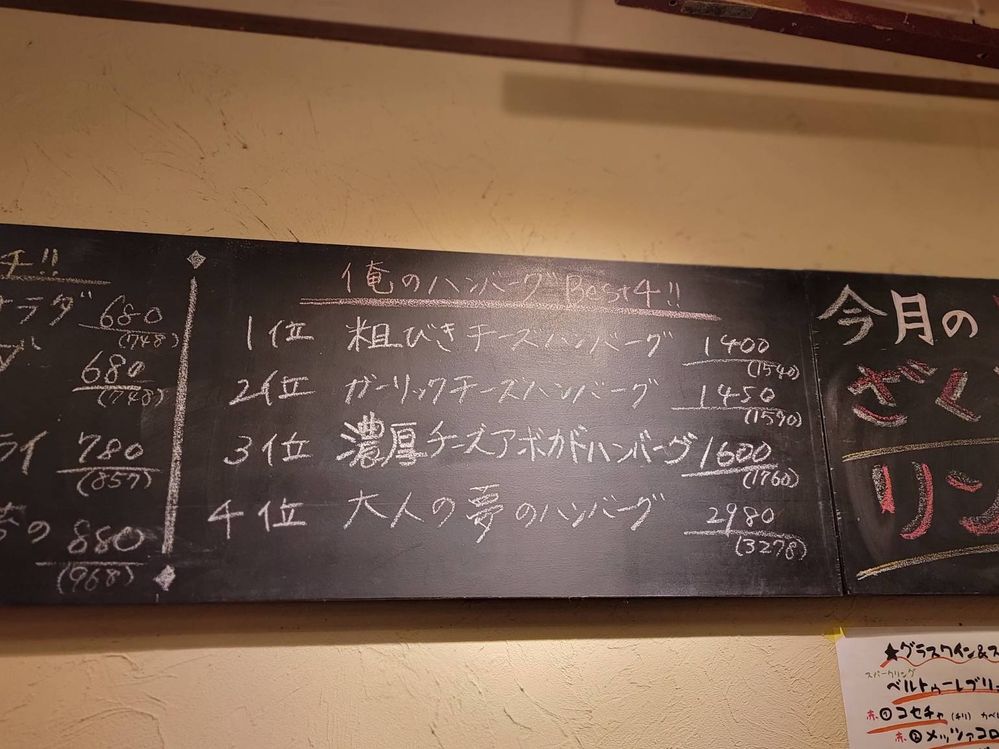 チ!!
ラダ 680
(748)
680
(748)
ライ 780
(857)
の 880
(968)
俺のハンバーグ Best4!!
1位 粗びきチーズハンバーグ 1400
(1540)
2位 ガーリックチーズハンバーグ 1450
(1590)
3位 濃厚チーズアボカドハンバーグ 1600
(1760)
4位 大人の夢のハンバーグ 2980
(3278)
今月の
ざく
リン
★グラスワイン&ス
スパークリング
ベルトゥーレブリ
赤①コセチャ (チリ) カベ
赤②メッツァコロ